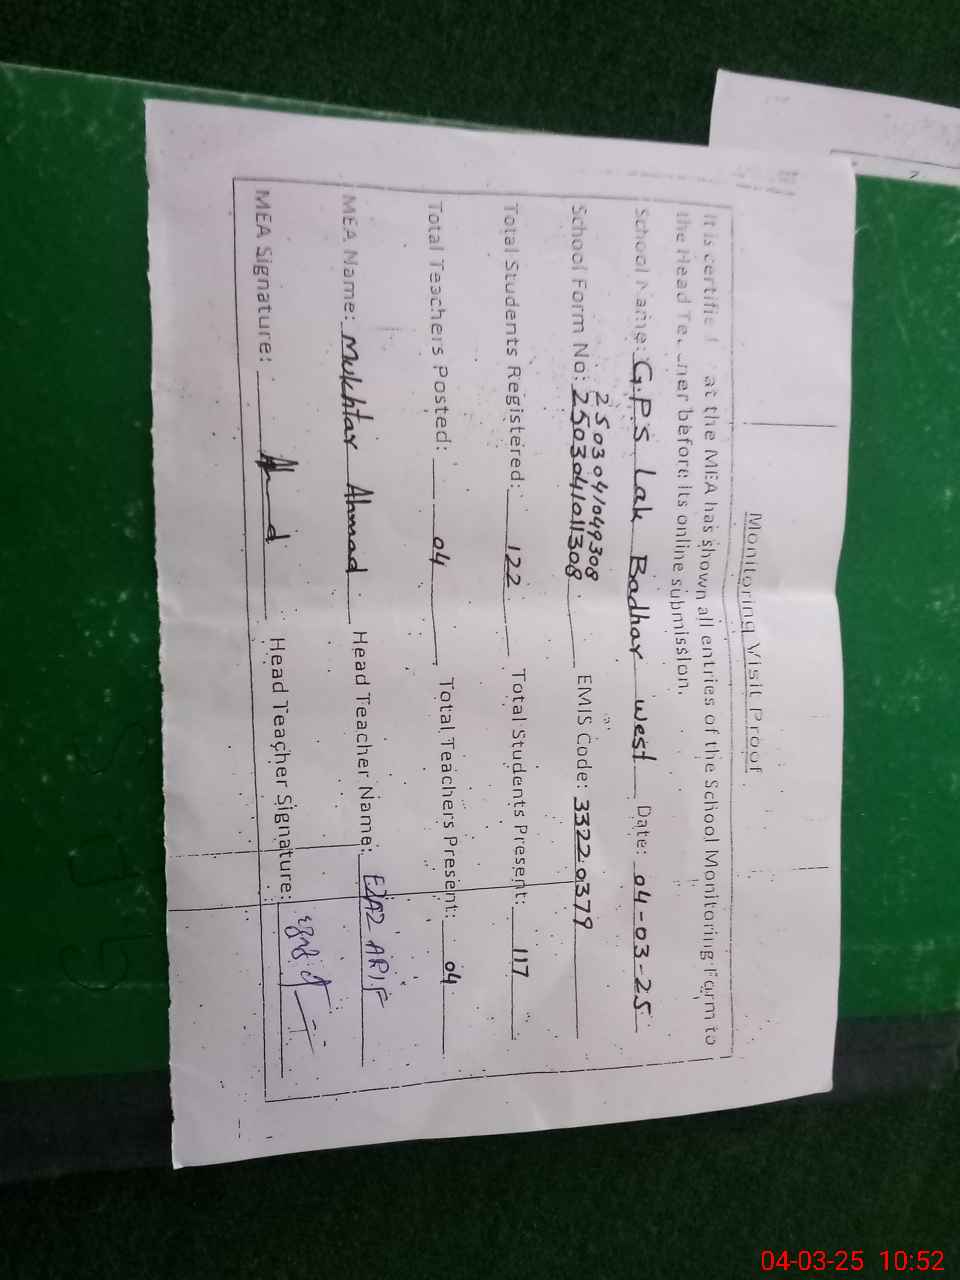 Monitoring Visit Proof
It is certified that the MEA has shown all entries of the School Monitoring Form to
the Head Teacher before its online submission.
School Name: G.P.S Lak Badhar west Date: 04-03-25
2503041049308
School Form No: 2503041011308 EMIS Code: 33220379
Total Students Registered: 122 Total Students Present: 117
Total Teachers Posted: 04 Total Teachers Present: 04
MEA Name: Mukhtar Ahmad Head Teacher Name: EJAZ ARIF
MEA Signature: Head Teacher Signature:
04-03-25 10:52